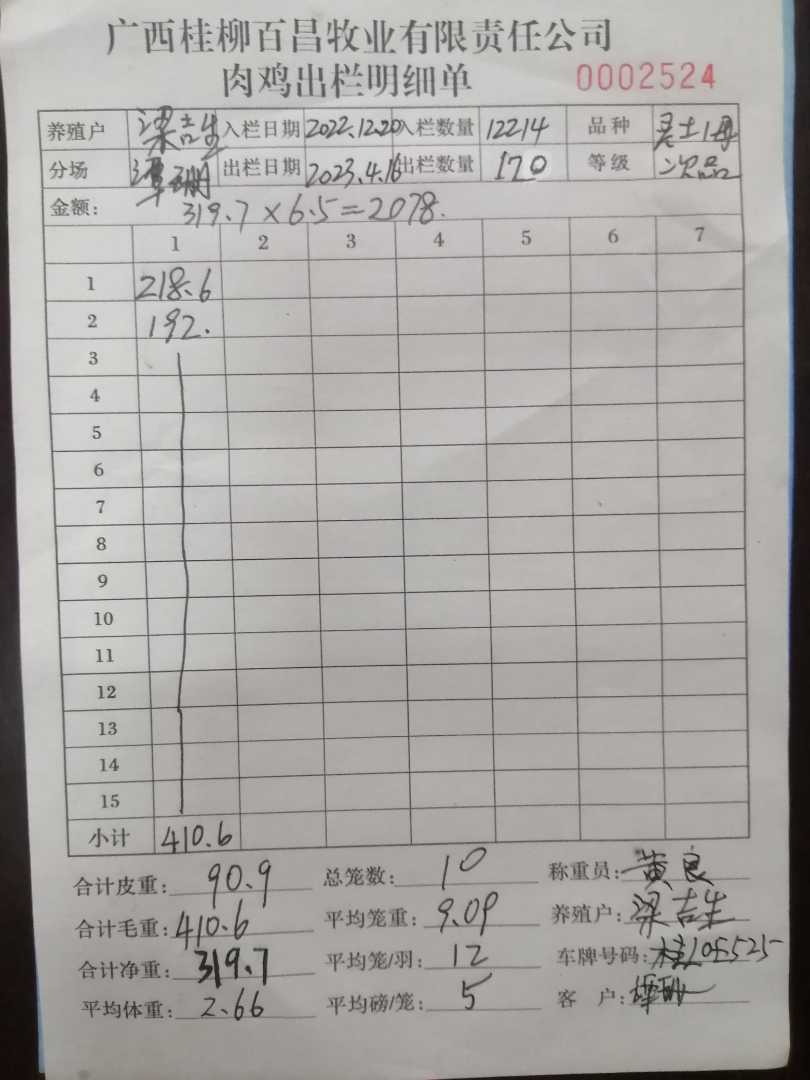 广西桂柳百昌牧业有限责任公司
肉鸡出栏明细单 0002524
养殖户 梁吉生 入栏日期 2022.12.20 入栏数量 12214 品种
分场 出栏日期 2023.4.16 出栏数量 120 等级 次品
金额: 319.7×6.5=2078.
1 2 3 4 5 6 7
1 218.6
2 192.
3
4
5
6
7
8
9
10
11
12
13
14
15
小计 410.6
合计皮重: 90.9 总笼数: 10 称重员: 黄良
合计毛重: 410.6 平均笼重: 9.09 养殖户: 梁吉生
合计净重: 319.7 平均笼/羽: 12 车牌号码:
平均体重: 2.66 平均磅/笼: 5 客户: